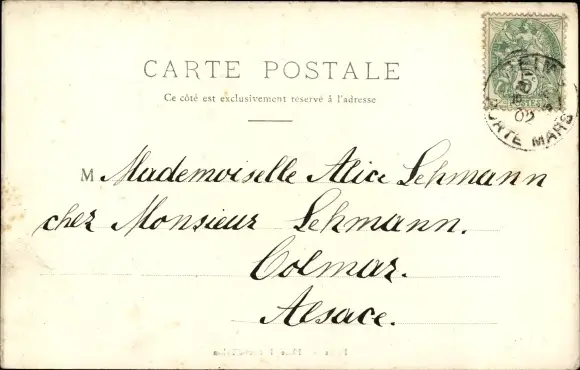 CARTE POSTALE
Ce côté est exclusivement réservé à l'adresse
M Mademoiselle Alice Lehmann
chez Monsieur Lehmann.
Colmar.
Alsace.
5
02
PORTE MARS